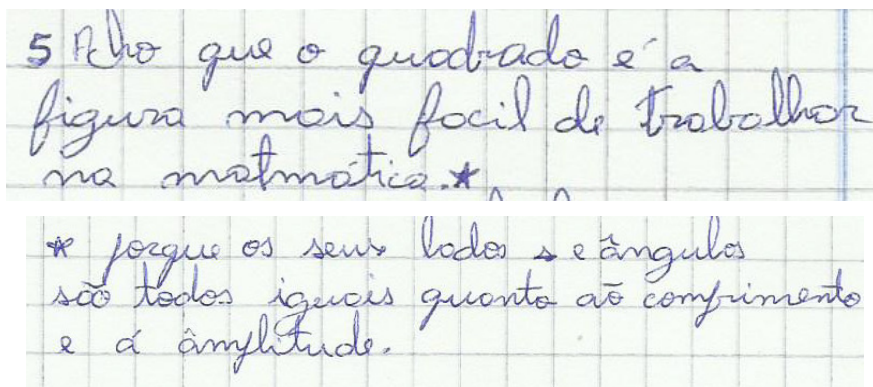 5 Acho que o quadrado é a
figura mais facil de trabalhar
na matmática.*
* porque os seus lados e ângulos
são todos iguais quanto aõ comprimento
e á âmplitude.